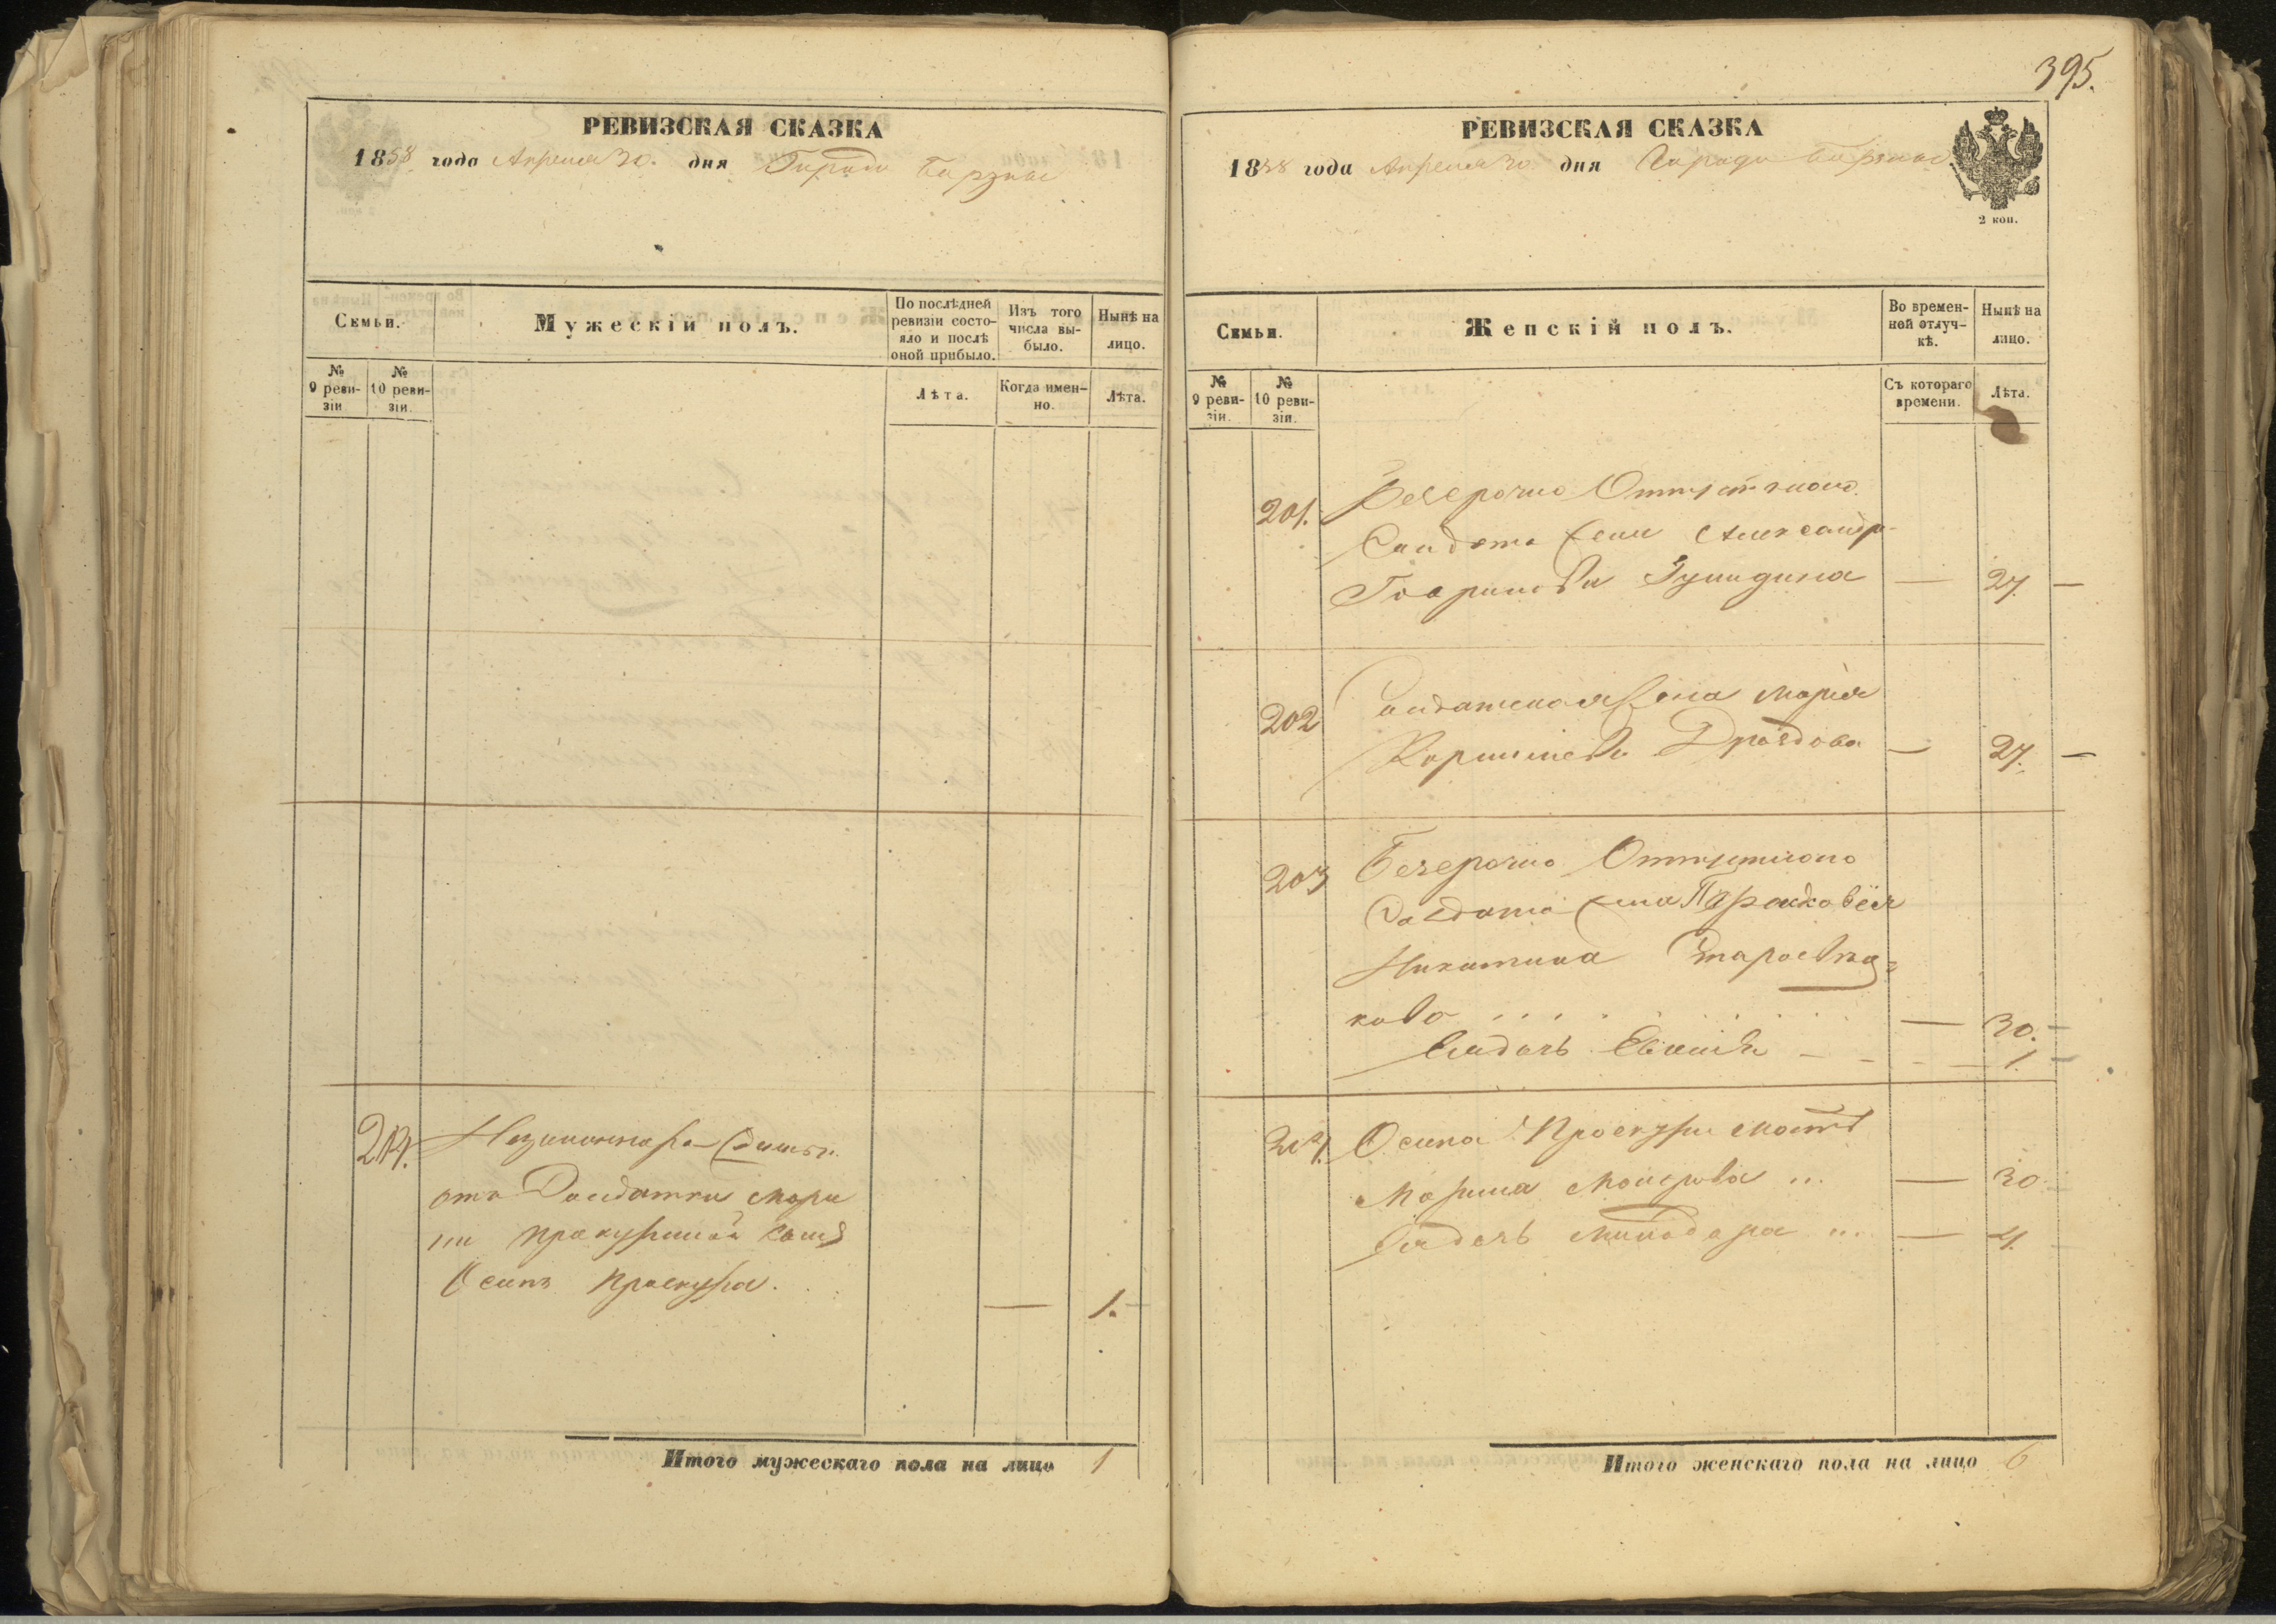 395.
РЕВИЗСКАЯ СКАЗКА
1858 года Апреля 30. дня Города Борзны
Семьи.
Мужескій полъ.
По послѣдней ревизіи состояло и послѣ оной прибыло.
Изъ того числа выбыло.
Нынѣ на лицо.
№ 9 ревизіи
№ 10 ревизіи.
Лѣта.
Когда именно.
Лѣта.
204.
отъ Солдатки Мари
ны Проскуриной сынъ
Осипъ Проскура.
— 1.
Итого мужескаго пола на лицо 1
РЕВИЗСКАЯ СКАЗКА
1858 года Апреля 30 дня Города Борзны
2 коп.
Семьи.
Женскій полъ.
Во временной отлучкѣ.
Нынѣ на лицо.
№ 9 ревизіи.
№ 10 ревизіи.
Съ котораго времени.
Лѣта.
201. Безсрочно Отпускного
Солдата жена Александра
— 27. —
202 Солдатская жена Марія
Дроздова — 27. —
203 Безсрочно Отпускного
Солдата жена Парасковѣя
Никитина
кова — 30. —
Ея дочь — 1. —
204. Осипа Проскуры мать
Марина — 30 —
Ея дочь Минодора — 4. —
Итого женскаго пола на лицо 6